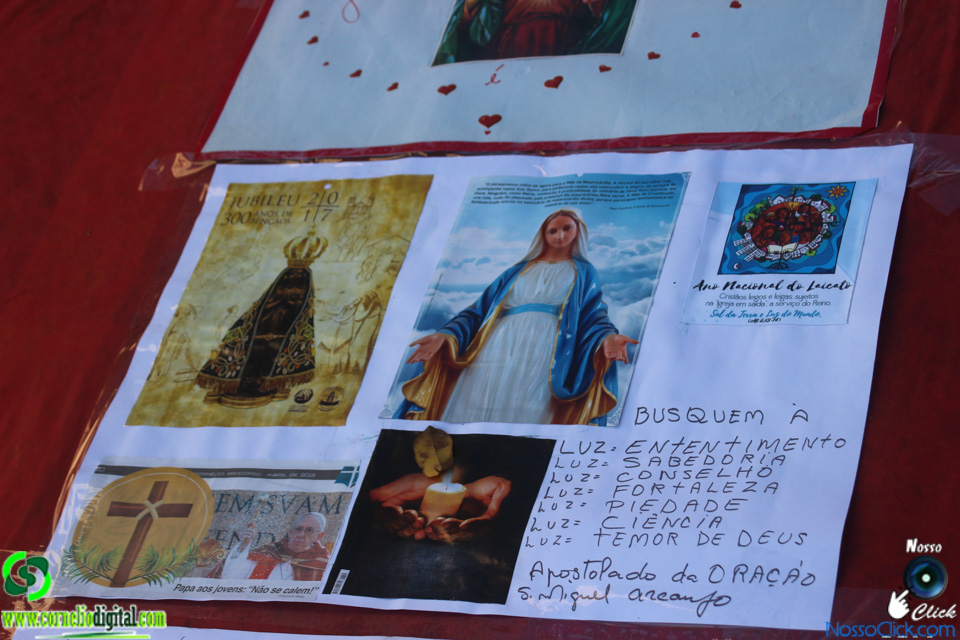 é
JUBILEU 20
300 ANOS DE BÊNÇÃOS 17
Ano Nacional do Laicato
Cristãos leigos e leigas, sujeitos
na Igreja em saída, a serviço do Reino.
Sal da Terra e Luz do Mundo.
BUSQUEM À
LUZ= ENTENTIMENTO
LUZ= SABEDORIA
LUZ= CONSELHO
LUZ= FORTALEZA
LUZ= PIEDADE
LUZ= CIÊNCIA
LUZ= TEMOR DE DEUS
Apostolado da ORAÇÃO
S. Miguel arcanjo
EM SVAM
Papa aos jovens: “Não se calem!”
www.corneliodigital.com
Nosso
Click
NossoClick.com